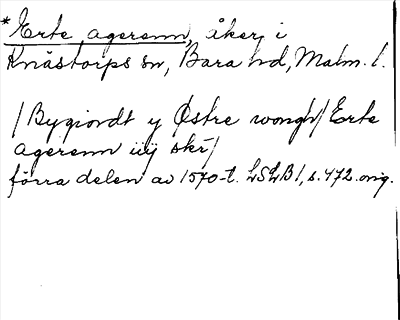 * Erte agerenn, åkerj i
Knästorps sn, Bara hd, Malm. l.
/Bygiordt y Østre wongh/ Erte
agerenn iiij skr/
förra delen av 1570-t. LSLB 1, s. 472. orig.